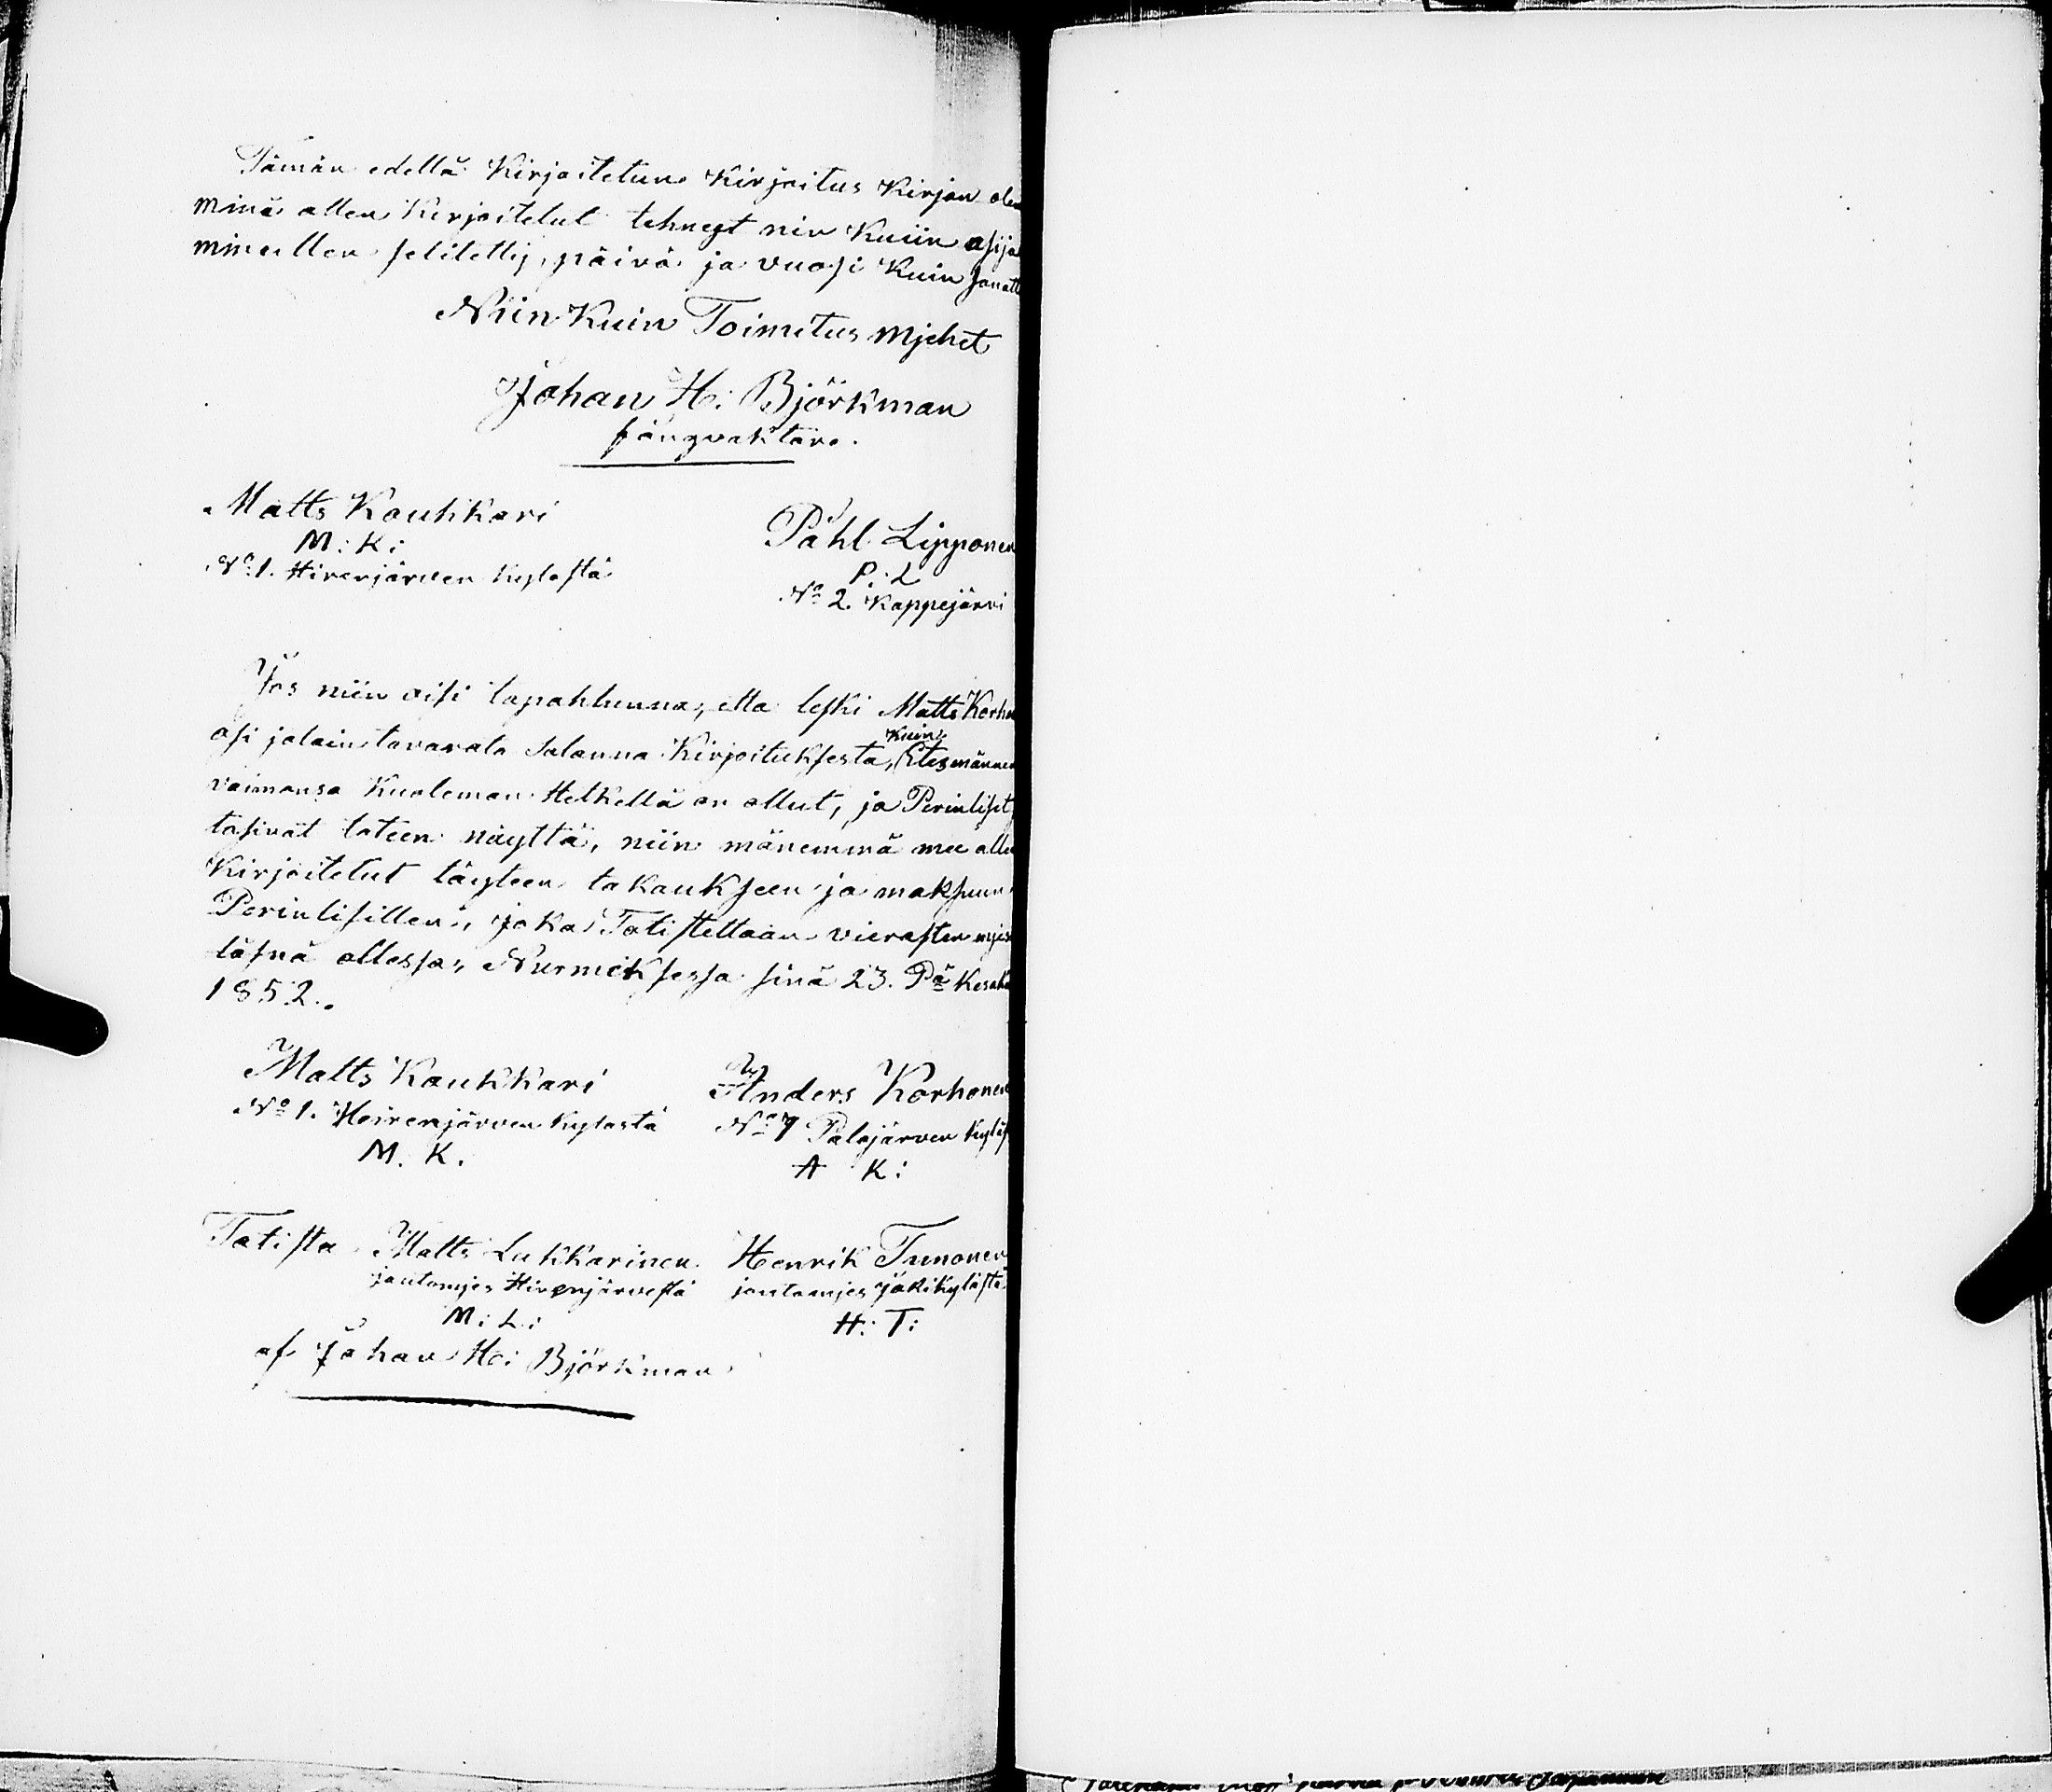 Tämän edellä Kirjoitetun Kirjoitus Kirjan olen
minä allen Kirjoitetut tehnyt nin Kuiin asija
minullen selitettij, päivä ja vuosi Kuin sanatt
Niin Kuin Toimitus Mjehet
Johan H: Björkman
fångvaktare.
Matts Koukkari
M: K:
No 1. Hirvenjärven Kylästä
Påhl Lipponen
P: L
No 2. Kappejärvi
Jos niin oisi tapahtunna, etta leski Matts Korho
osi jotain tavarata Salanna Kirjoituksesta, Kuin Etesmännen
vaimonsa Kualeman Hetkellä on ollut, ja Perinliset
taisivat toteen näyttä, niin mänemmä mee alle
Kirjoitetut täyteen takaukseen ja maksuun
Perinlisillen, joka Totistettaan vierasten mjes
läsnä ollessa, Nurmeksessa sinä 23. Pä Kesäk
1852.
Matts Koukkari
No 1. Heirenjärven Kylästä
M. K.
Anders Korhonen
No 7 Palojärven Kyläs
A K:
Totista Matts Lukkarinen Henrik Tunonen
jautamjes Hirvenjärvestä jautamjes Jokikylästä
M: L: H: T:
af Johan H: Björkman